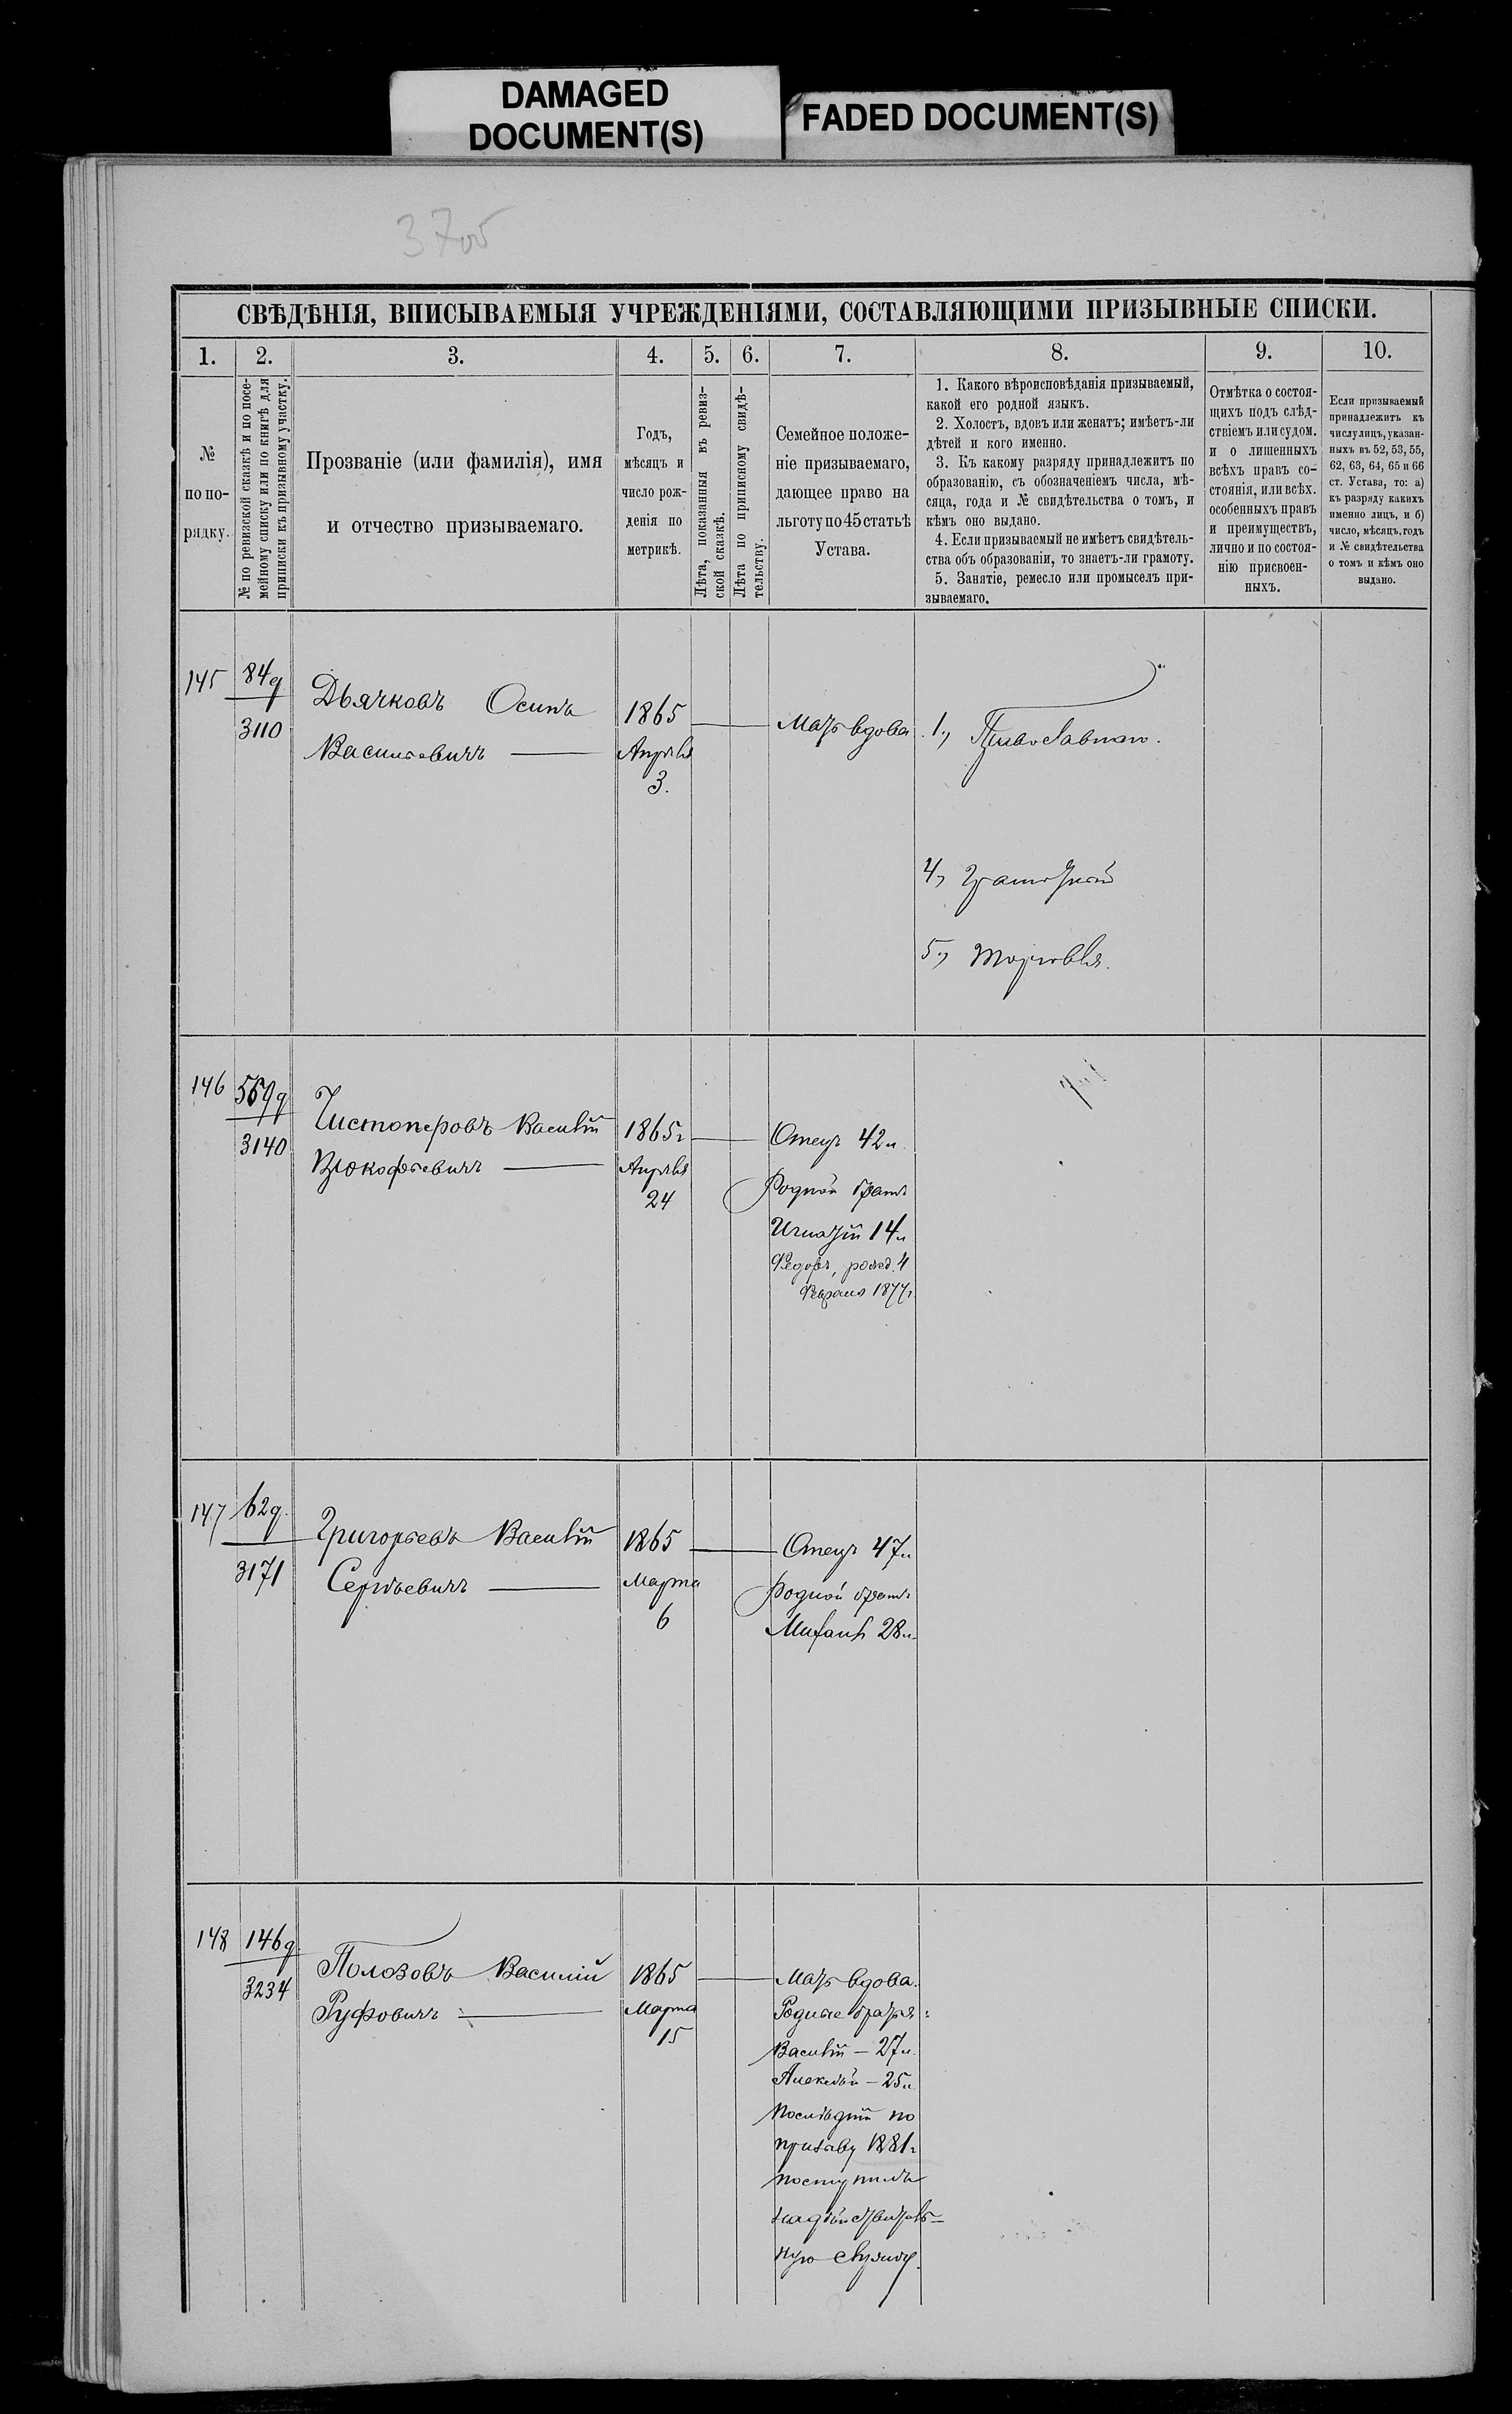 DAMAGED
DOCUMENT(S)
FADED DOCUMENT(S)
370об
СВѢДѢНІЯ, ВПИСЫВАЕМЫЯ УЧРЕЖДЕНІЯМИ, СОСТАВЛЯЮЩИМИ ПРИЗЫВНЫЕ СПИСКИ.
1.
2.
3.
4.
5.
6.
7.
8.
9.
10.
№
по по-
рядку.
№ по ревизской сказкѣ и по посе-
мейному списку или по книгѣ для
приписки къ призывному участку.
Прозваніе (или фамилія), имя
и отчество призываемаго.
Годъ,
мѣсяцъ и
число рож-
денія по
метрикѣ.
Лѣта, показанныя въ ревиз-
ской сказкѣ.
Лѣта по приписному свидѣ-
тельству.
Семейное положе-
ніе призываемаго,
дающее право на
льготу по 45 статьѣ
Устава.
1. Какого вѣроисповѣданія призываемый,
какой его родной языкъ.
2. Холостъ, вдовъ или женатъ; имѣетъ-ли
дѣтей и кого именно.
3. Къ какому разряду принадлежитъ по
образованію, съ обозначеніемъ числа, мѣ-
сяца, года и № свидѣтельства о томъ, и
кѣмъ оно выдано.
4. Если призываемый не имѣетъ свидѣтель-
ства объ образованіи, то знаетъ-ли грамоту.
5. Занятіе, ремесло или промыселъ при-
зываемаго.
Отмѣтка о состоя-
щихъ подъ слѣд-
ствіемъ или судом.
и о лишенныхъ
всѣхъ правъ со-
стоянія, или всѣх.
особенныхъ правъ
и преимуществъ,
лично и по состоя-
нію присвоен-
ныхъ.
Если призываемый
принадлежитъ къ
числу лицъ, указан-
ныхъ въ 52, 53, 55,
62, 63, 64, 65 и 66
ст. Устава, то: а)
къ разряду какихъ
именно лицъ, и б)
число, мѣсяцъ, годъ
и № свидѣтельства
о томъ и кѣмъ оно
выдано.
145
84д
3110
Дьячковъ Осипъ
Васильевичъ
1865
Апрѣля
3.
Мать вдова
1, Православнаго.
4, Грамотный
5, Торговля.
146
569д
3140
Чистоперовъ Василій
Прокофьевичъ
1865г
Апрѣля
24
Отецъ 42л.
Родной братъ
Игнатій 14л
Федоръ, рожд. 4
Февраля 1877г
147
62д.
3171
Григорьевъ Василій
Сергѣевичъ
1865
Марта
6
Отецъ 47л
Родной братъ
Михаилъ 28л.
148
146д.
3234
Полозовъ Василій
Руфовичъ
1865
Марта
15
Мать вдова.
Родные братья:
Василій – 27л.
Алексѣй – 25л
послѣдній по
призыву 1881г
поступилъ
на дѣйствитель-
ную службу.